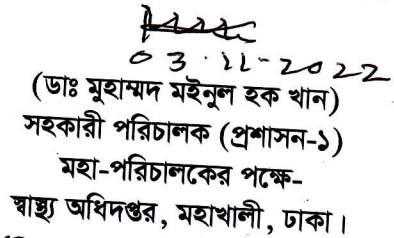 03.11-2022
(ডাঃ মুহাম্মদ মইনুল হক খান)
সহকারী পরিচালক (প্রশাসন-১)
মহা-পরিচালকের পক্ষে-
স্বাস্থ্য অধিদপ্তর, মহাখালী, ঢাকা।